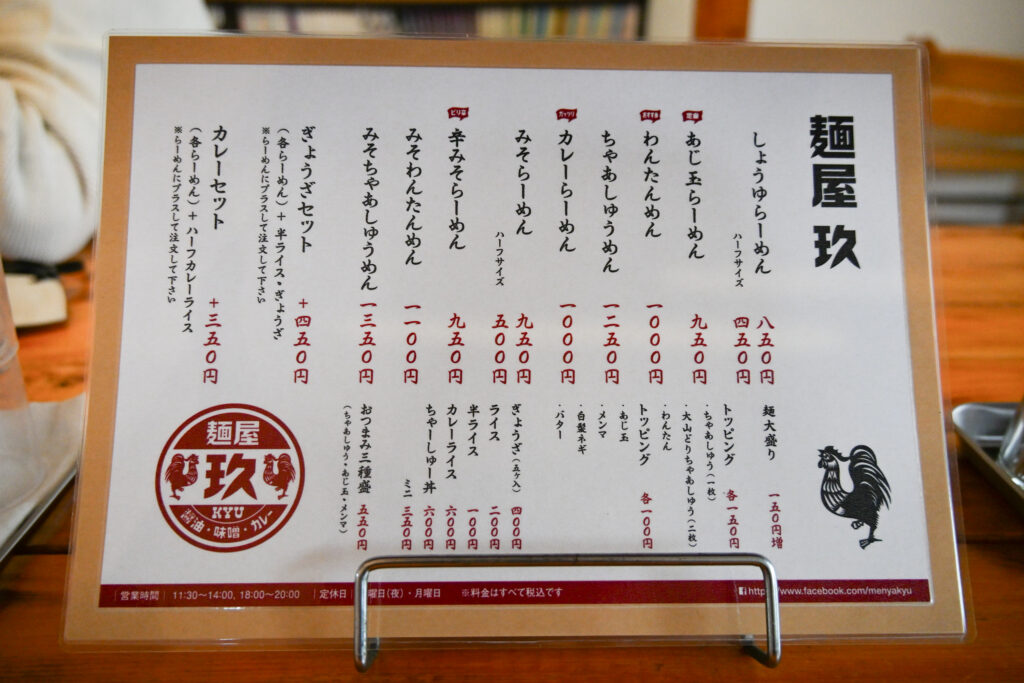 麺屋 玖
しょうゆらーめん 八五〇円
ハーフサイズ 四五〇円
定番
あじ玉らーめん 九五〇円
おすすめ
わんたんめん 一〇〇〇円
ちゃあしゅうめん 一二五〇円
ガッツリ
カレーらーめん 一〇〇〇円
みそらーめん 九五〇円
ハーフサイズ 五〇〇円
ピリ辛
辛みそらーめん 九五〇円
みそわんたんめん 一一〇〇円
みそちゃあしゅうめん 一三五〇円
ぎょうざセット ＋四五〇円
（各らーめん）＋半ライス・ぎょうざ
※らーめんにプラスして注文して下さい
カレーセット ＋三五〇円
（各らーめん）＋ハーフカレーライス
※らーめんにプラスして注文して下さい
麺大盛り 一五〇円増
トッピング 各一五〇円
・ちゃあしゅう（一枚）
・大山どりちゃあしゅう（二枚）
・わんたん
トッピング 各一〇〇円
・あじ玉
・メンマ
・白髪ネギ
・バター
ぎょうざ（五ヶ入） 四〇〇円
ライス 二〇〇円
半ライス 一〇〇円
カレーライス 六〇〇円
ちゃーしゅー丼 六〇〇円
ミニ 三五〇円
おつまみ三種盛 五五〇円
（ちゃあしゅう・あじ玉・メンマ）
麺屋
玖
KYU
醤油・味噌・カレー
営業時間 11:30～14:00, 18:00～20:00 定休日 曜日(夜)・月曜日 ※料金はすべて税込です
http www.facebook.com/menyakyu